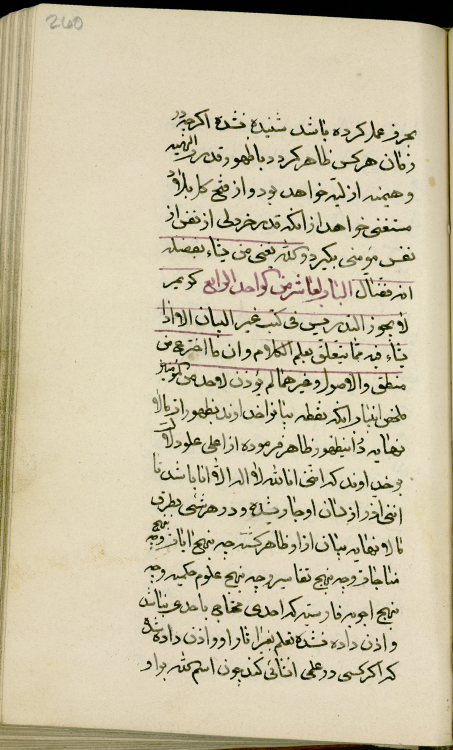 260
بحرفی عمل کرده باشد شنیده نشده اگرچه در
زمان هر کس ظاهر کردد با ظهور قدرت الهیه
و هیمنه ازلیه خواهد بود و از فتح کل بلاد
مستغنی خواهد از انکه قدر خردلی از نفس از
نفس مؤمنی بگیرد و کذلک یغنی من یشاء بفضله
انه فضال الباب العاشر من الواحد الرابع که بر
لا یجوز التدریس فی کتب غیر البیان الا اذا
ینشاء فیه مما یتعلق بعلم الکلام و ان ما اخترع من
منطق و الاصول و غیرهما لم یؤذن لاحد من المؤمنین
ملخص این باب انکه نقطه بیان خداوند بظهور از مالا
نهایه در این ظهور ظاهر فرموده از اعلی علو دلالت
بر خداوند که اننی انا الله لا اله الا انا باشد تا
ادنی از شان او جاری شده و در هر شئی بطریق
مالا نهایه بیان از او ظاهر گشته چه بنهج ایات و چه بنهج
مناجات و چه بنهج تفاسیر و چه بنهج علوم حکمیه و چه
بنهج اجوبه فارسیه که احدی محتاج باحدی نباشد
و اذن داده نشده تعلم بغیر اثار او و اذن داده شده
که اگر کسی در علمی انشائی کند چون اسم الله بر او